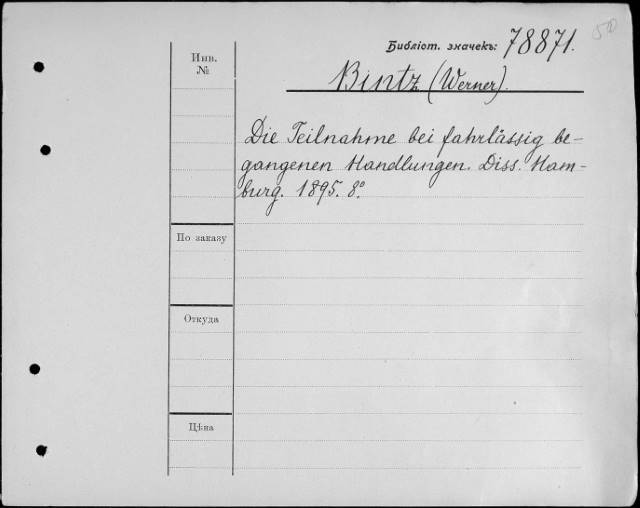 50
Библіот. значекъ: 78871.
Инв.
№
Bintz (Werner).
Die Teilnahme bei fahrlässig be-
gangenen Handlungen. Diss. Ham-
burg. 1895. 8°.
По заказу
Откуда
Цѣна